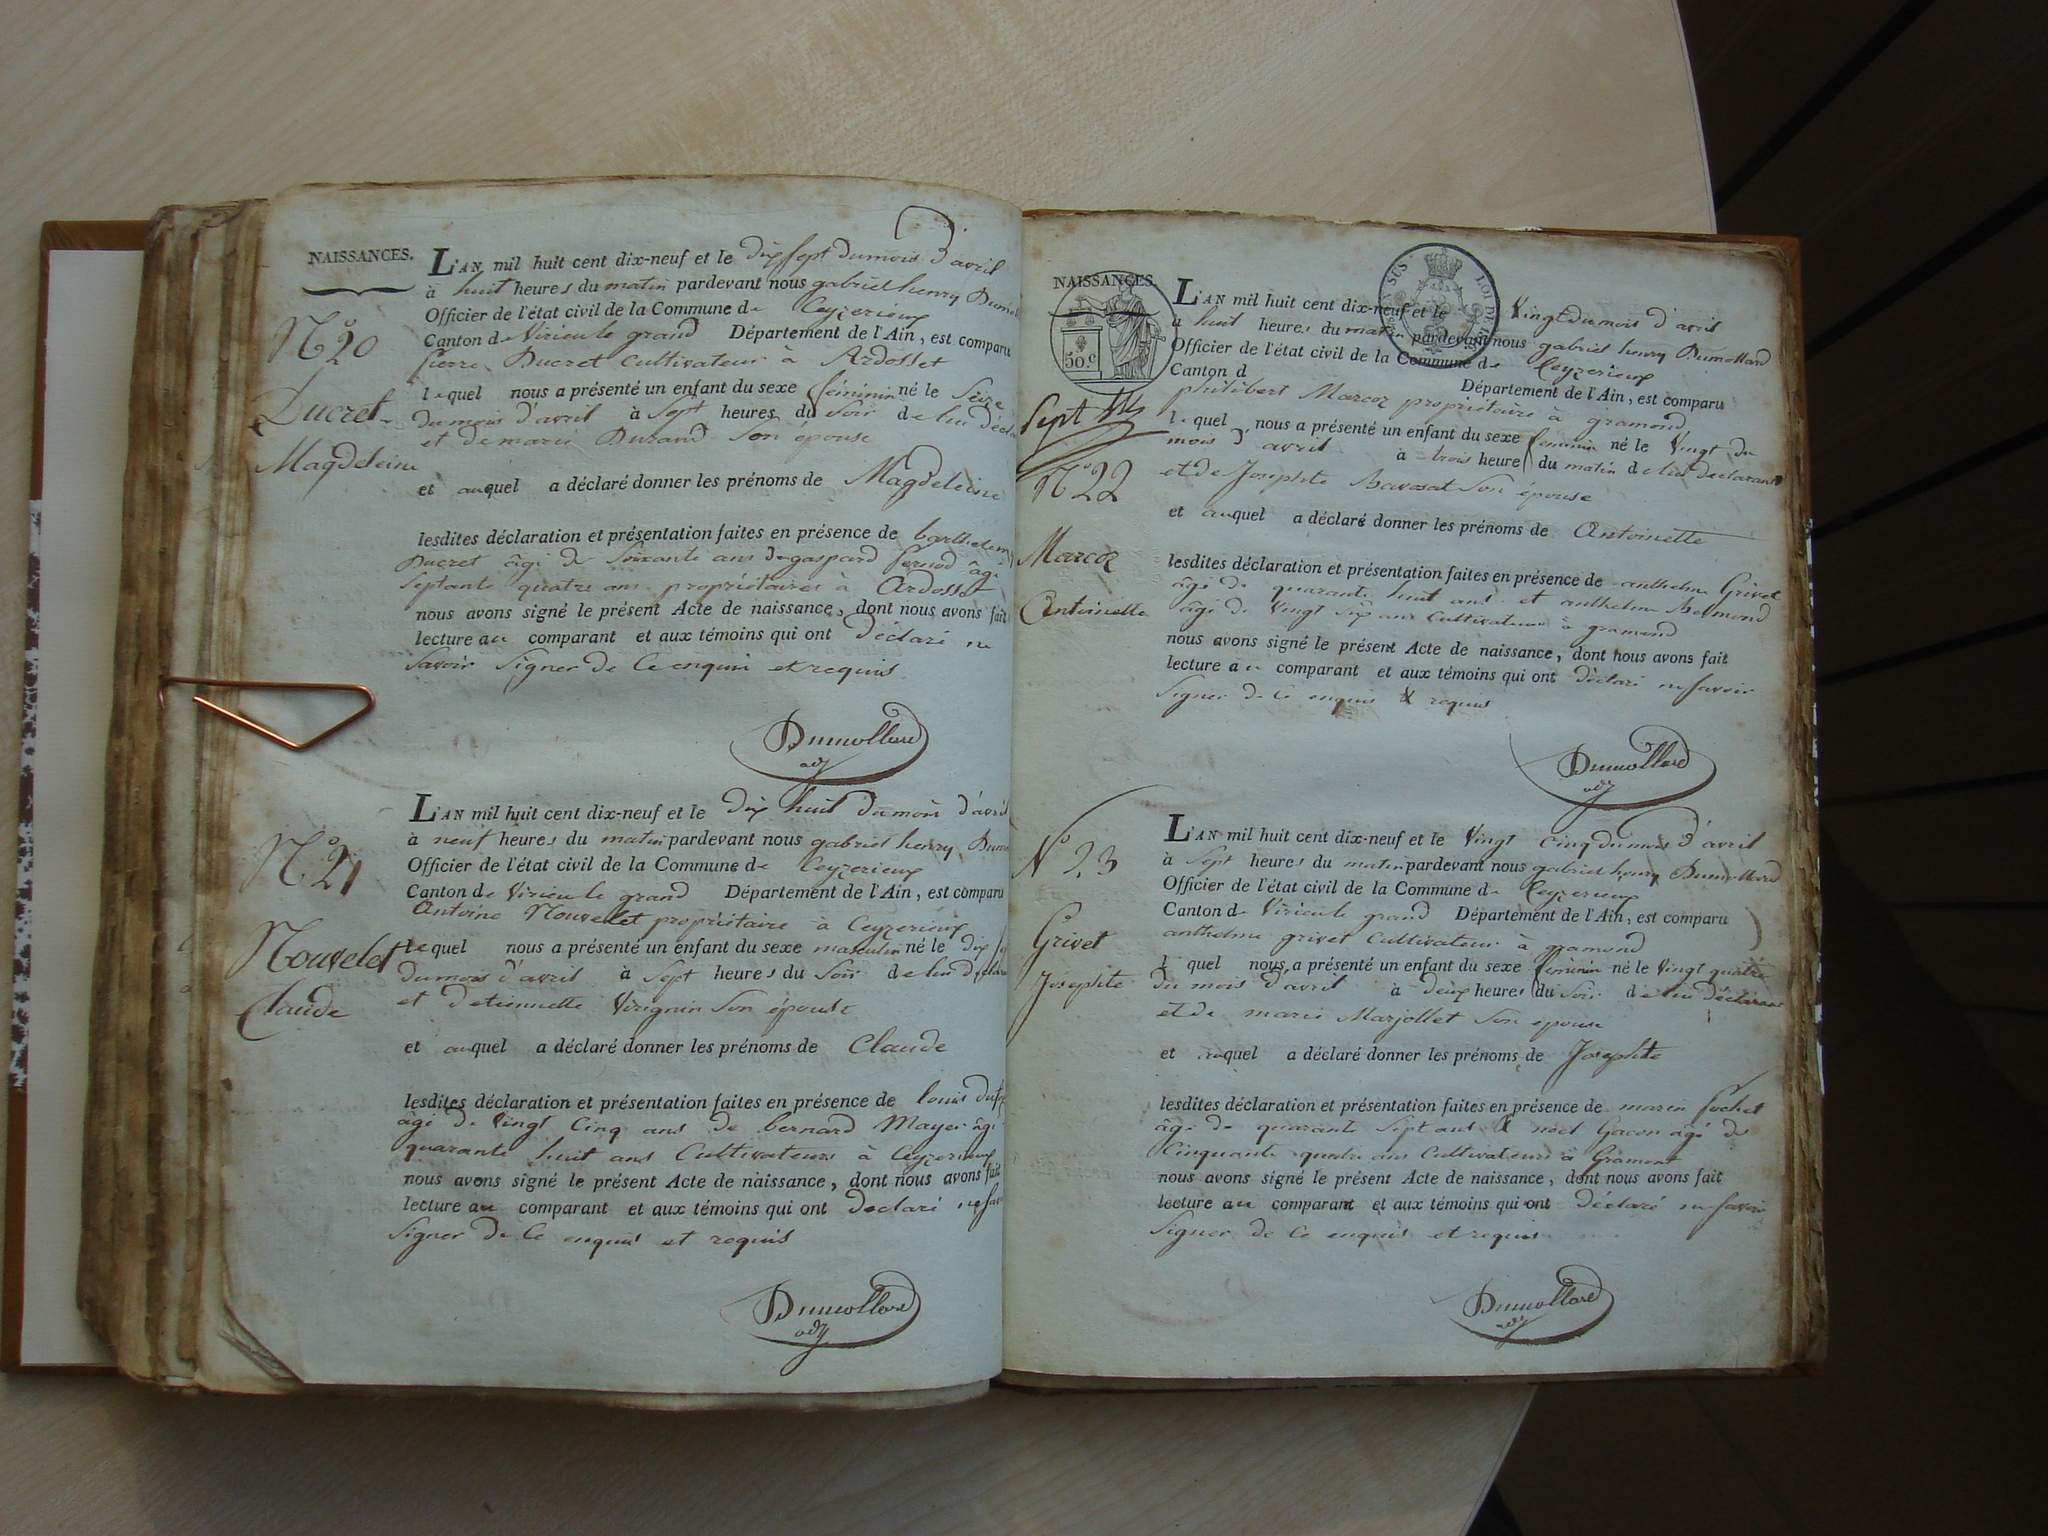 NAISSANCES.
L'AN mil huit cent dix-neuf et le dix sept du mois d'avril
à huit heures du matin pardevant nous gabriel henry
Officier de l'état civil de la Commune de Ceyzerieux
Canton de Virieu le grand Département de l'Ain, est comparu
pierre Ducret Cultivateur à Ardosset
lequel nous a présenté un enfant du sexe féminin né le Seize
du mois d'avril à Sept heures du Soir de lui
et de marie Durand Son épouse
et auquel a déclaré donner les prénoms de Magdeleine
lesdites déclaration et présentation faites en présence de barthelemy
Ducret âgé de Soixante ans & gaspard pernod âgé
Septante quatre ans propriétaires à Ardosset
nous avons signé le présent Acte de naissance, dont nous avons fait
lecture au comparant et aux témoins qui ont déclaré ne
Savoir Signer de Ce enquis et requis
Dumollard
adj
N° 20
Ducret
Magdeleine
L'AN mil huit cent dix-neuf et le dix huit du mois d'avril
à neuf heures du matin pardevant nous gabriel henry
Officier de l'état civil de la Commune de Ceyzerieux
Canton de Virieu le grand Département de l'Ain, est comparu
Antoine Nouvelet propriétaire à Ceyzerieux
lequel nous a présenté un enfant du sexe masculin né le dix
du mois d'avril à Sept heures du Soir de lui
et detiennette Virignin Son épouse
et auquel a déclaré donner les prénoms de Claude
lesdites déclaration et présentation faites en présence de louis
âgé de Vingt Cinq ans de bernard Mayer âgé
quarante huit ans Cultivateurs à Ceyzerieux
nous avons signé le présent Acte de naissance, dont nous avons fait
lecture au comparant et aux témoins qui ont déclaré ne
Signer de Ce enquis et requis
Dumollard
adj
N° 21
Nouvelet
Claude
NAISSANCES.
50 c
ROI DE
L'AN mil huit cent dix-neuf et le Vingt du mois d'avril
à huit heures du matin pardevant nous gabriel henry Dumollard
Officier de l'état civil de la Commune de Ceyzerieux
Canton d Département de l'Ain, est comparu
philibert Marcoz propriétaire à gramond
lequel nous a présenté un enfant du sexe feminin né le Vingt du
mois d'avril à trois heures du matin de lui declarant
et de Josephte Son épouse
et auquel a déclaré donner les prénoms de Antoinette
lesdites déclaration et présentation faites en présence de anthelme Grivet
âgé de quarante huit ans et anthelme Bermond
âgé de Vingt Six ans Cultivateurs à gramond
nous avons signé le présent Acte de naissance, dont nous avons fait
lecture au comparant et aux témoins qui ont déclaré ne savoir
Signer de Ce enquis & requis
Dumollard
adj
Sept
N° 22
Marcoz
Antoinette
L'AN mil huit cent dix-neuf et le Vingt Cinq du mois d'avril
à Sept heures du matin pardevant nous gabriel henry Dumollard
Officier de l'état civil de la Commune de Ceyzerieux
Canton de Virieu le grand Département de l'Ain, est comparu
anthelme grivet Cultivateur à gramond
lequel nous a présenté un enfant du sexe féminin né le Vingt quatre
du mois d'avril à deux heures du Soir de lui déclarant
et de marie Marjollet Son épouse
et auquel a déclaré donner les prénoms de Josephte
lesdites déclaration et présentation faites en présence de marin fochet
âgé de quarante Sept ans & noel Gacon âgé de
Cinquante quatre ans Cultivateurs à Gramont
nous avons signé le présent Acte de naissance, dont nous avons fait
lecture au comparant et aux témoins qui ont déclaré ne savoir
Signer de Ce enquis et requis
Dumollard
adj
N° 23
Grivet
Josephte